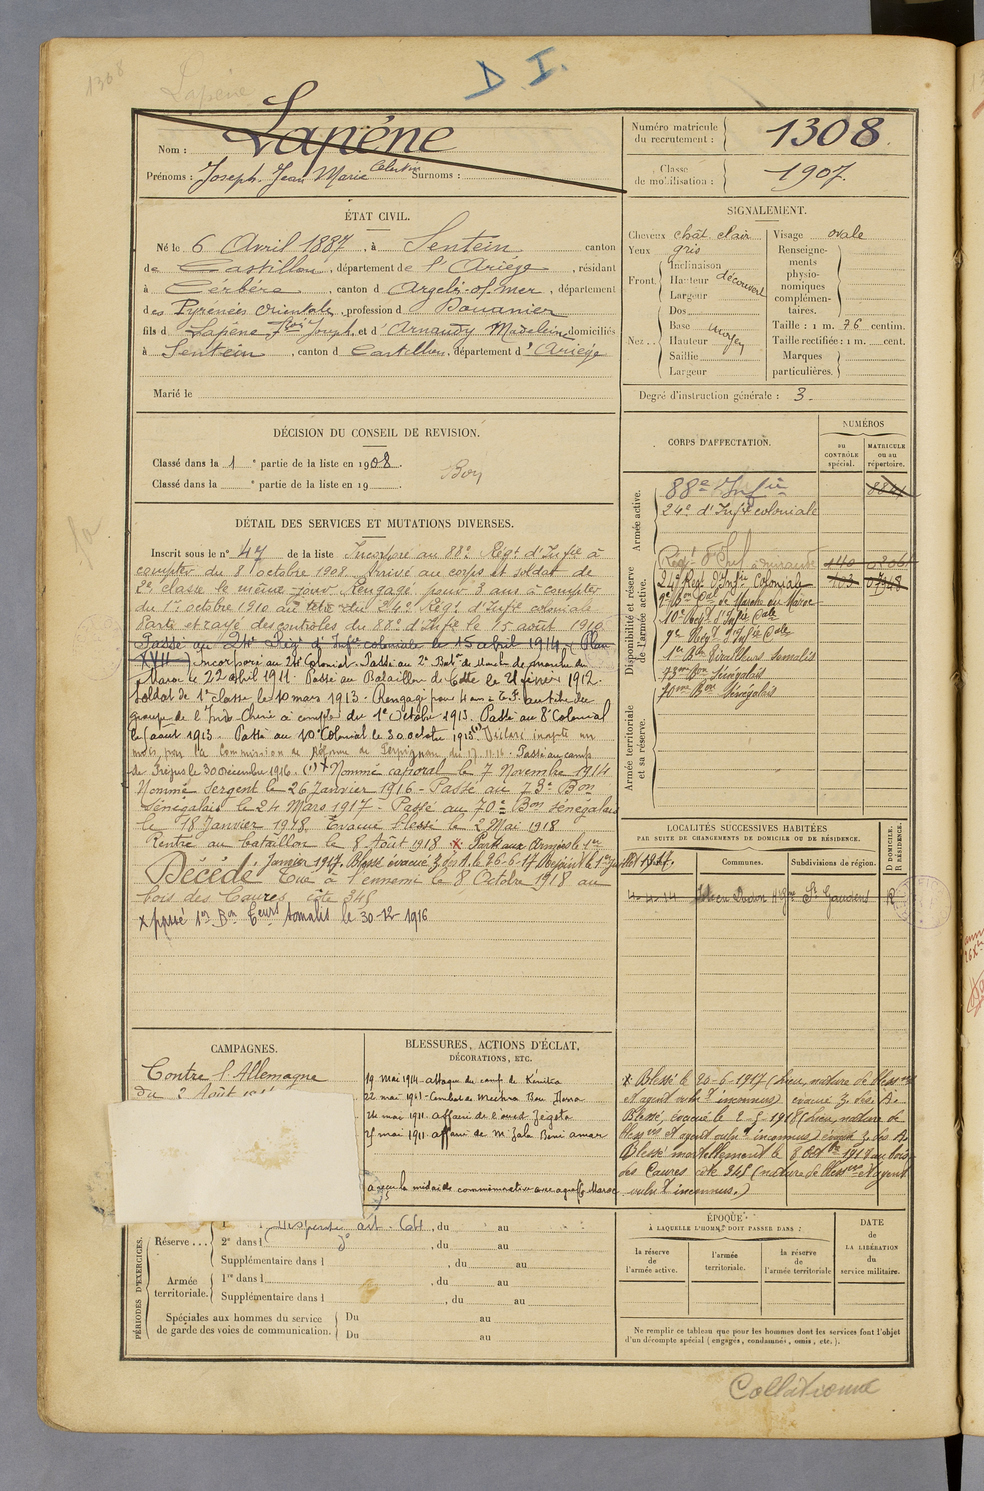 1308
Lapène
D I.
Nom : Lapène
Prénoms : Joseph Jean Marie Célestin Surnoms :
Numéro matricule du recrutement : 1308
Classe de mobilisation : 1907.
ÉTAT CIVIL.
Né le 6 Avril 1887, à Sentein canton
de Castillon, département de l'Ariège, résidant
à Cérbère, canton d Argelès-s/-mer, département
des Pyrénées Orientales, profession d Douanier
fils d Lapène Joseph et d' Arnaudy Madelein domiciliés
à Sentein, canton d Castillon, département d' Ariège
Marié le
SIGNALEMENT.
Cheveux chât. clair
Yeux gris
Front. Inclinaison Hauteur Largeur découvert
Nez .. Dos Base Hauteur Saillie Largeur moyen
Visage ovale
Renseignements physionomiques complémentaires.
Taille : 1 m. 76 centim.
Taille rectifiée : 1 m. cent.
Marques particulières.
Degré d'instruction générale : 3.
DÉCISION DU CONSEIL DE REVISION.
Classé dans la 1e partie de la liste en 1908.
Classé dans la e partie de la liste en 19
Bon
CORPS D'AFFECTATION.
NUMÉROS
au CONTRÔLE spécial.
MATRICULE ou au répertoire.
Armée active.
88e Infie
24e d'Infie coloniale
Disponibilité et réserve de l'armée active.
24e Reg. d'Infie Coloniale
2e Bon Cal de Marche au Maroc
10e Regt d'Infie Cale
9e Regt d'Infie Cale
1er Bon Tirailleurs Somalis
73me Bon Sénégalais
70me Bon Sénégalais
Armée territoriale et sa réserve.
DÉTAIL DES SERVICES ET MUTATIONS DIVERSES.
Inscrit sous le n° 47 de la liste Incorporé au 88e Régt d'Infie à
compter du 8 octobre 1908. Arrivé au corps et soldat de
2e classe le même jour. Rengagé pour 3 ans à compter
du 1er octobre 1910 au titre du 24e Régt d'Infie coloniale
Parti et rayé des contrôles du 88e d'Infie le 15 août 1910
Passé au 24e Régt d'Infie coloniale le 15 abril 1914 (Plan
XVII) incorporé au 24e Colonial. Passé au 2e Batn de Marche de marche du
Maroc le 22 avril 1911. Passé au Bataillon de Côtte le 21 février 1912.
Soldat de 1re classe le 10 mars 1913. Rengagé pour 4 ans au titre du
groupe de l'Indo-Chine à compter du 1er Octobre 1913. Passé au 8e Colonial
le 1 août 1913. Passé au 10e Colonial le 30 octobre 1913 (1) Déclaré inapte un
mois par la Commission de Réforme de Perpignan du 17.11.16. Passé au camp
de Fréjus le 30 Décembre 1916. (1) + Nommé caporal le 7 Novembre 1914
Nommé Sergent le 26 Janvier 1916 - Passé au 73e Bon
Sénégalais le 24 Mars 1917 - Passé au 70e Bon sénégalais
le 18 Janvier 1918. Evacué blessé le 2 Mai 1918
Rentré au bataillon le 8 Août 1918 x Parti aux Armées le 1er
Janvier 1917. Blessé évacué Z des A. le 26-6-17 Rejoint le 1er Juillet 1917.
Décédé Tué à l'ennemi le 8 Octobre 1918 au
bois des Caures côte 345
x passé 1er Bon Teurs Somalis le 30-12-1916
LOCALITÉS SUCCESSIVES HABITÉES
PAR SUITE DE CHANGEMENTS DE DOMICILE OU DE RÉSIDENCE.
Communes.
Subdivisions de région.
D DOMICILE. R RÉSIDENCE.
4-4-14 St Gaudens R
CAMPAGNES.
Contre l'Allemagne
du 2 Août
BLESSURES, ACTIONS D'ÉCLAT,
DÉCORATIONS, ETC.
19 mai 1911 - attaque du camp de Kénitra
22 mai 1911 - Combat de Mechra Bou
24 mai 1911. affaire de l'oued Zegota
25 mai 1911 - affaire de M Zala Beni amar
a reçu la médaille commémorative avec agrafe Maroc
x Blessé le 20-6-1917 (lieu, nature de bless res
et agent vulnt inconnus) évacué Z des A.
Blessé, évacué le 2-5-1918 (lieu, nature de
bless res et agent vulnt inconnus) évacué Z des A.
Blessé mortellement le 8 Octbre 1918 au bois
des Caures côte 345 (nature de bless res et agent
vulnt inconnus.)
PÉRIODES D'EXERCICES.
Dispensé art. 64, du au
Réserve ... 2e dans l do, du au
Supplémentaire dans l, du au
Armée territoriale. 1re dans l, du au
Supplémentaire dans l, du au
Spéciales aux hommes du service de garde des voies de communication. Du au
Du au
ÉPOQUE
À LAQUELLE L'HOMME DOIT PASSER DANS :
la réserve de l'armée active.
l'armée territoriale.
la réserve de l'armée territoriale
DATE de LA LIBÉRATION du service militaire.
Ne remplir ce tableau que pour les hommes dont les services font l'objet
d'un décompte spécial (engagés, condamnés, omis, etc.).
Collationné